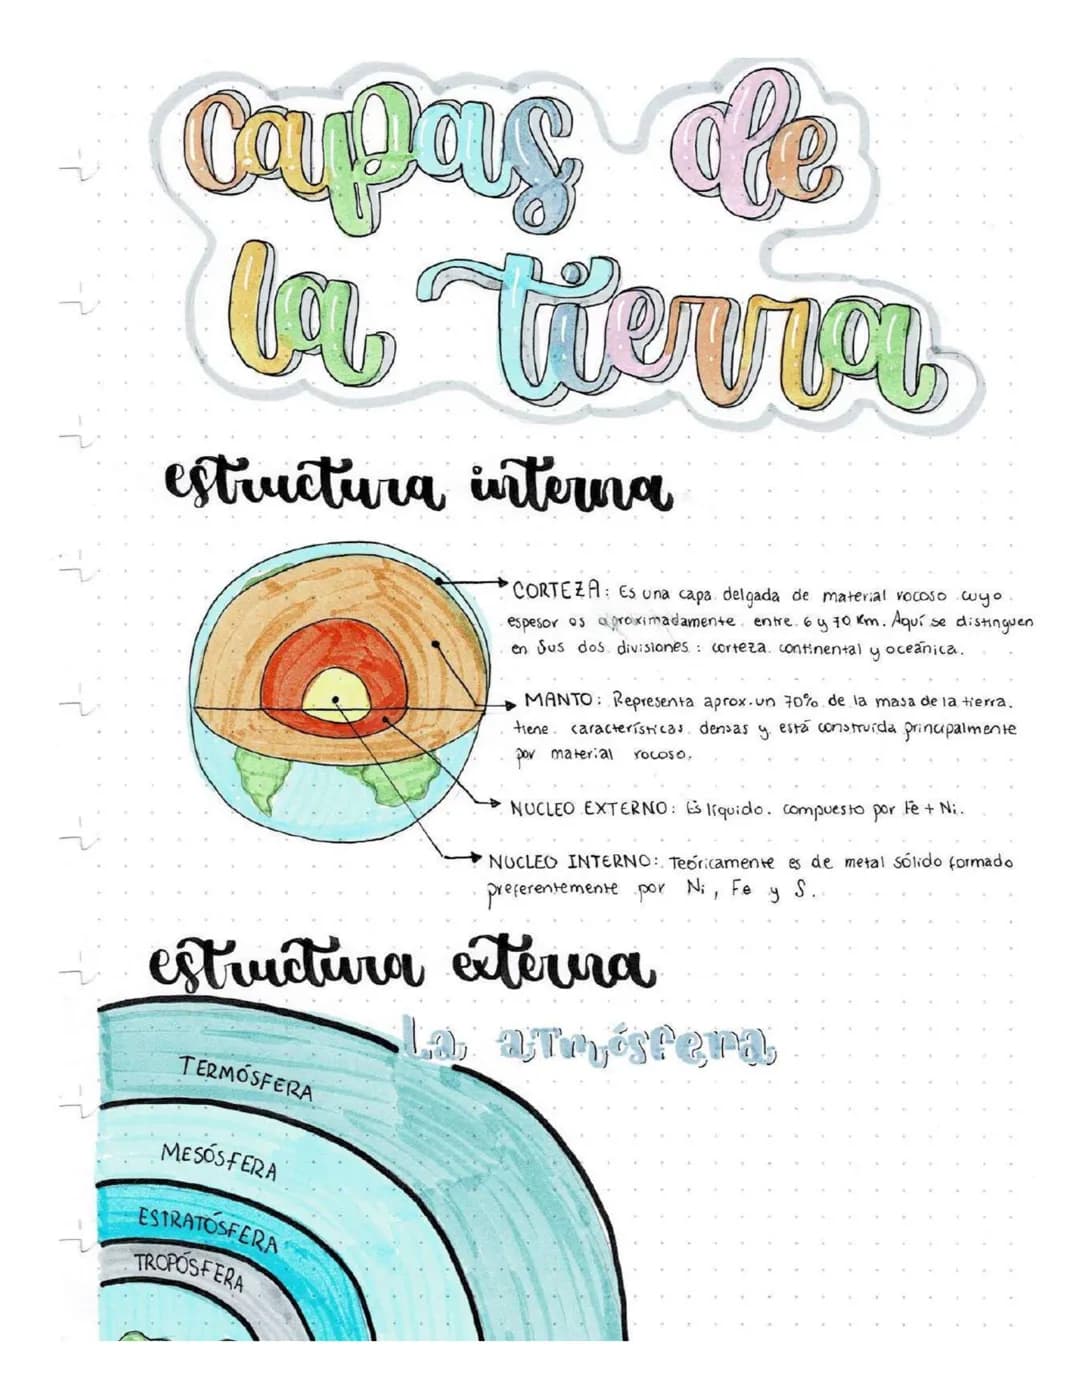 capas de
la tierra
estructura interna
CORTEZA: Es una capa delgada de material rocoso cuyo
espesor es aproximadamente entre 6 y 70 Km. Aquí se distinguen
en sus dos divisiones: corteza continental y oceánica.
MANTO: Representa aprox. un 70% de la masa de la tierra.
tiene características densas y está construída principalmente
por material rocoso.
NUCLEO EXTERNO: Es líquido. compuesto por Fe + Ni.
NUCLEO INTERNO: Teóricamente es de metal sólido formado
preferentemente por Ni, Fe y S.
estructura externa
La atmósfera
TERMÓSFERA
MESÓSFERA
ESTRATÓSFERA
TROPÓSFERA